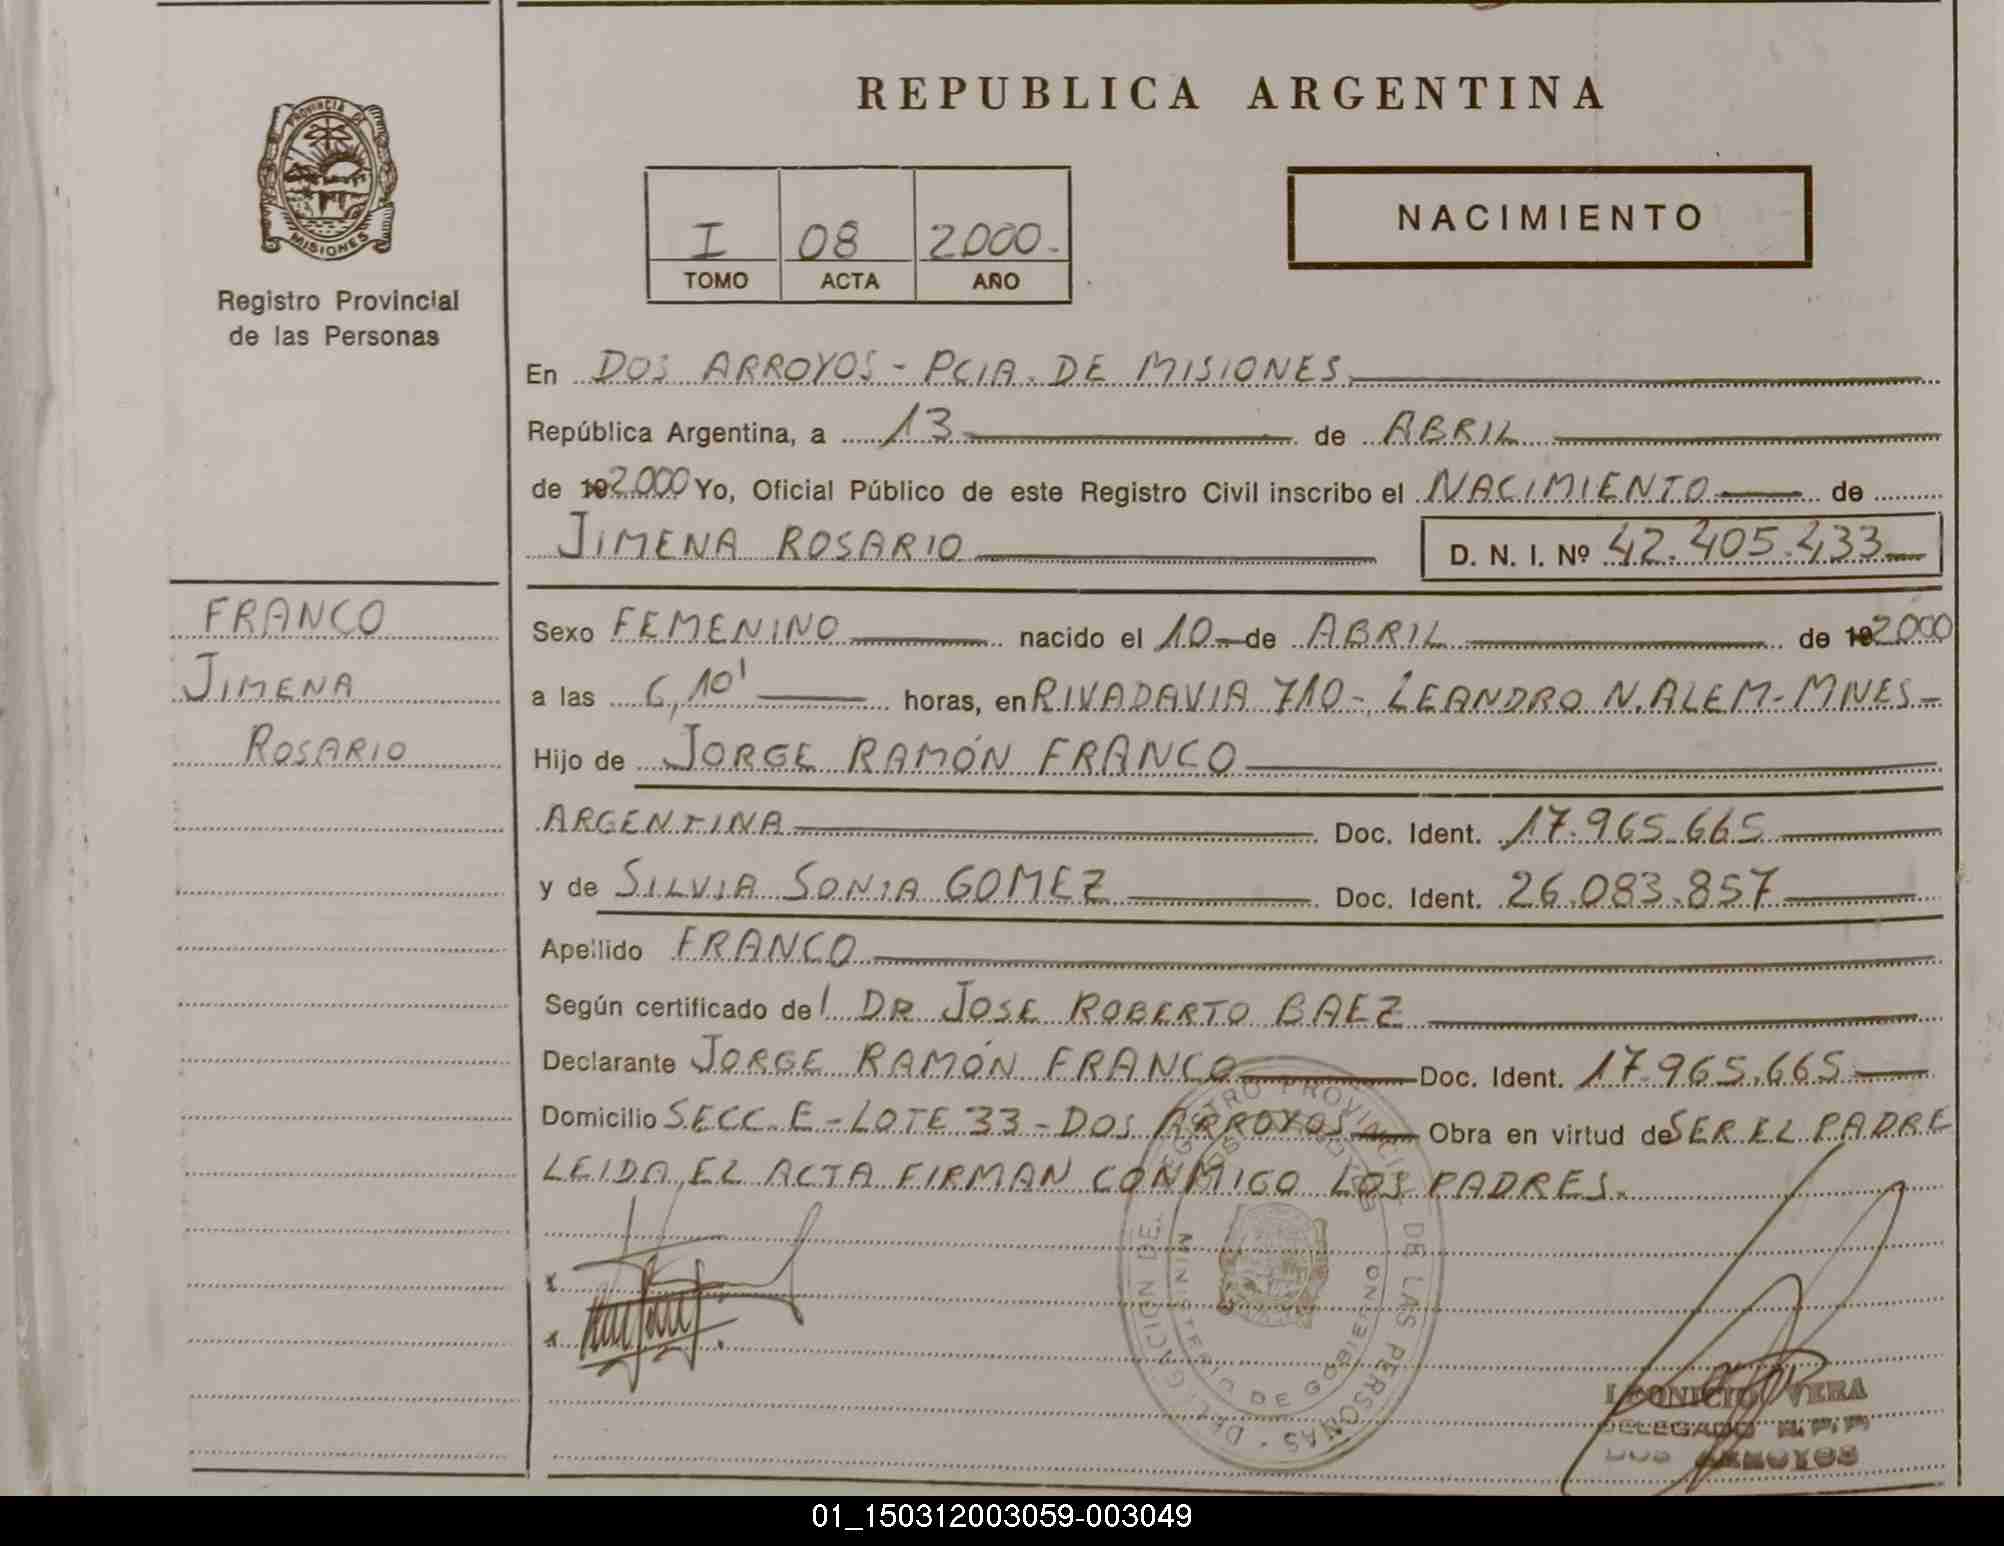 REPUBLICA ARGENTINA
PROVINCIA DE
MISIONES
Registro Provincial
de las Personas
NACIMIENTO
I 08 2000.-
TOMO ACTA AÑO
En DOS ARROYOS - PCIA. DE MISIONES
República Argentina, a 13 de ABRIL
de 192000 Yo, Oficial Público de este Registro Civil inscribo el NACIMIENTO de
JIMENA ROSARIO D. N. I. Nº 42.405.433
FRANCO
JIMENA
ROSARIO
Sexo FEMENINO nacido el 10 de ABRIL de 192000
a las 6,10' horas, en RIVADAVIA 710 - LEANDRO N. ALEM - MNES -
Hijo de JORGE RAMÓN FRANCO
ARGENTINA Doc. Ident. 17.965.665
y de SILVIA SONIA GOMEZ Doc. Ident. 26.083.857
Apellido FRANCO
Según certificado del DR JOSE ROBERTO BAEZ
Declarante JORGE RAMÓN FRANCO Doc. Ident. 17.965.665
Domicilio SECC. E - LOTE 33 - DOS ARROYOS Obra en virtud de SER EL PADRE
LEIDA EL ACTA FIRMAN CONMIGO LOS PADRES.
REGISTRO PROVINCIAL DE LAS PERSONAS
MINISTERIO DE GOBIERNO
VERA
DELEGADO R.P.P.
DOS ARROYOS
01_150312003059-003049